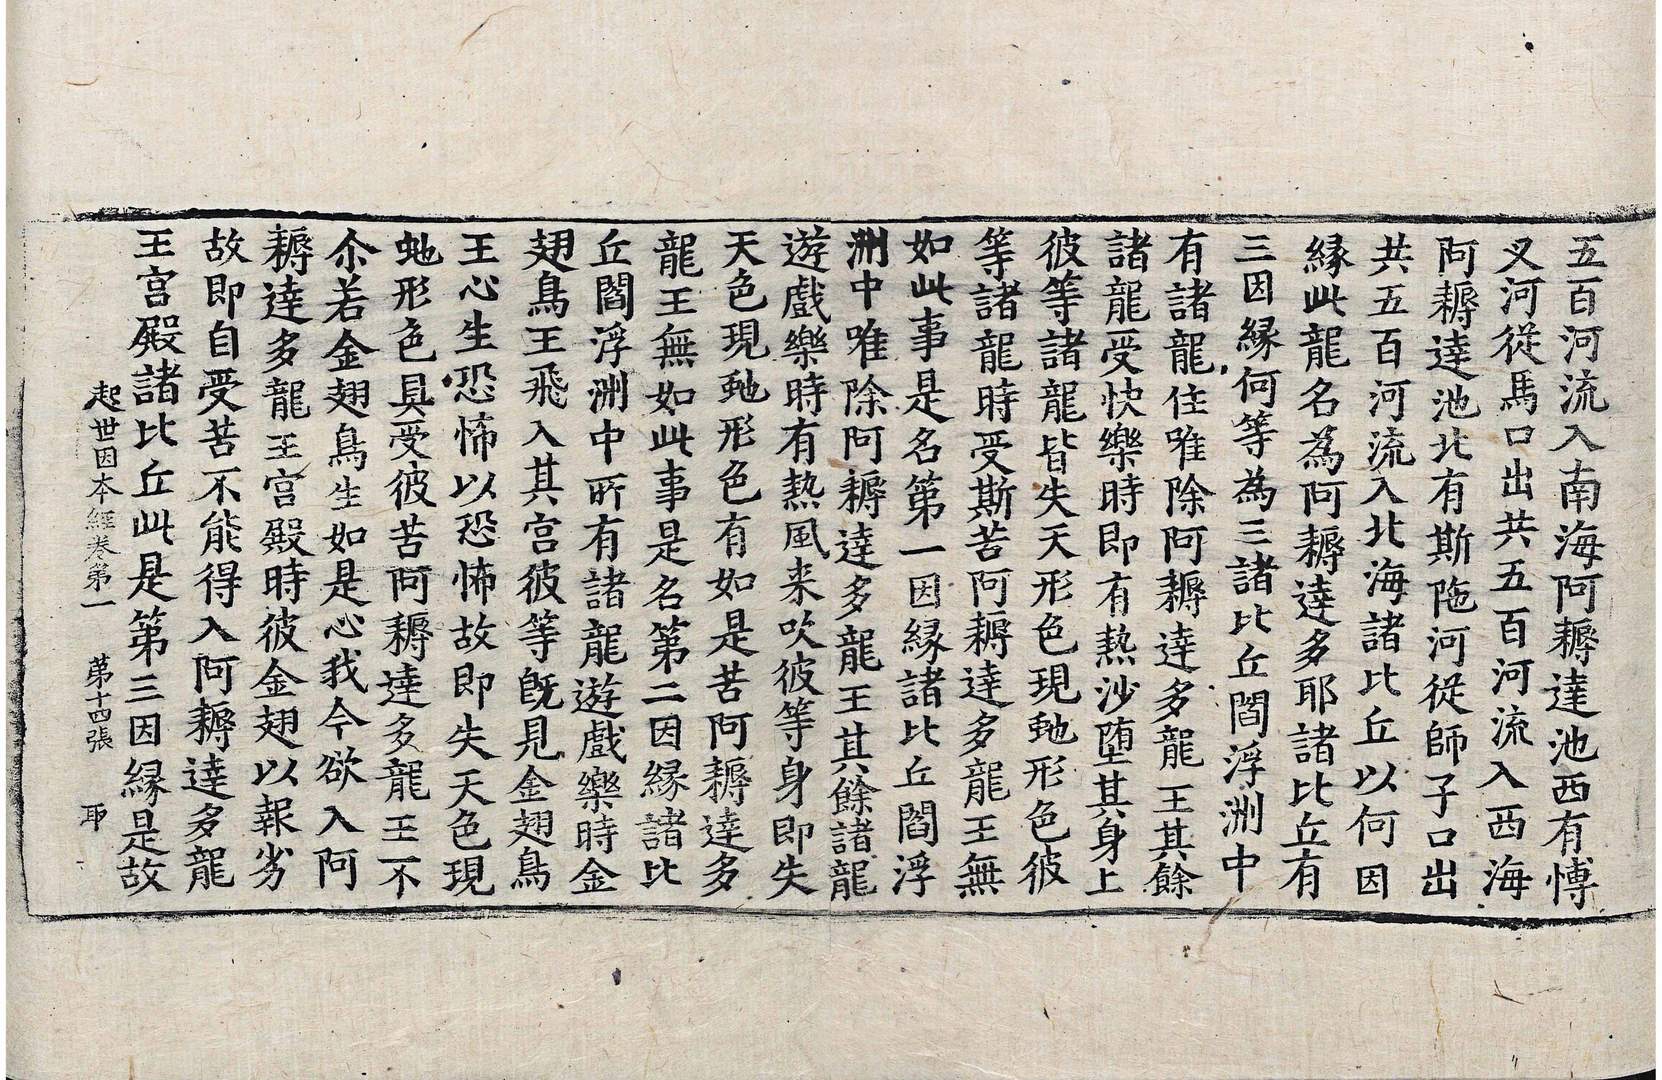 五百河流入南海阿耨達池西有愽
叉河從馬口出共五百河流入西海
阿耨達池北有斯陁河從師子口出
共五百河流入北海諸比丘以何因
縁此龍名為阿耨達多耶諸比丘有
三因縁何等為三諸比丘閻浮洲中
有諸龍住唯除阿耨達多龍王其餘
諸龍受快樂時即有熱沙堕其身上
彼等諸龍皆失天形色現虵形色彼
等諸龍時受斯苦阿耨達多龍王無
如此事是名第一因縁諸比丘閻浮
洲中唯除阿耨達多龍王其餘諸龍
遊戲樂時有熱風来吹彼等身即失
天色現虵形色有如是苦阿耨達多
龍王無如此事是名第二因縁諸比
丘閻浮洲中所有諸龍遊戲樂時金
翅鳥王飛入其宮彼等旣見金翅鳥
王心生恐怖以恐怖故即失天色現
虵形色具受彼苦阿耨達多龍王不
尒若金翅鳥生如是心我今欲入阿
耨達多龍王宮殿時彼金翅以報劣
故即自受苦不能得入阿耨達多龍
王宮殿諸比丘此是第三因縁是故
起世因本經卷第一 第十四張 耶